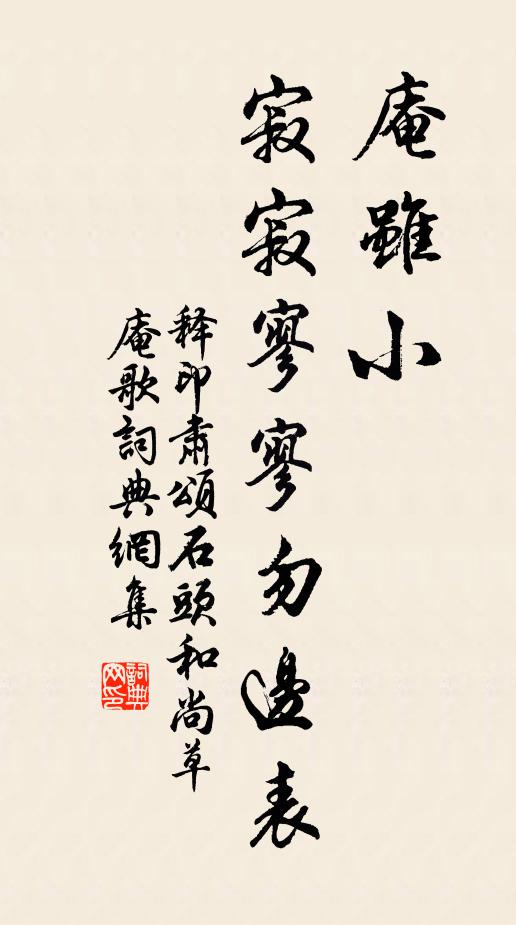 庵雖小
寂寂寥寥勿邊表
释印肅頌石頭和尚草
庵歌詞典網集
詞典网印